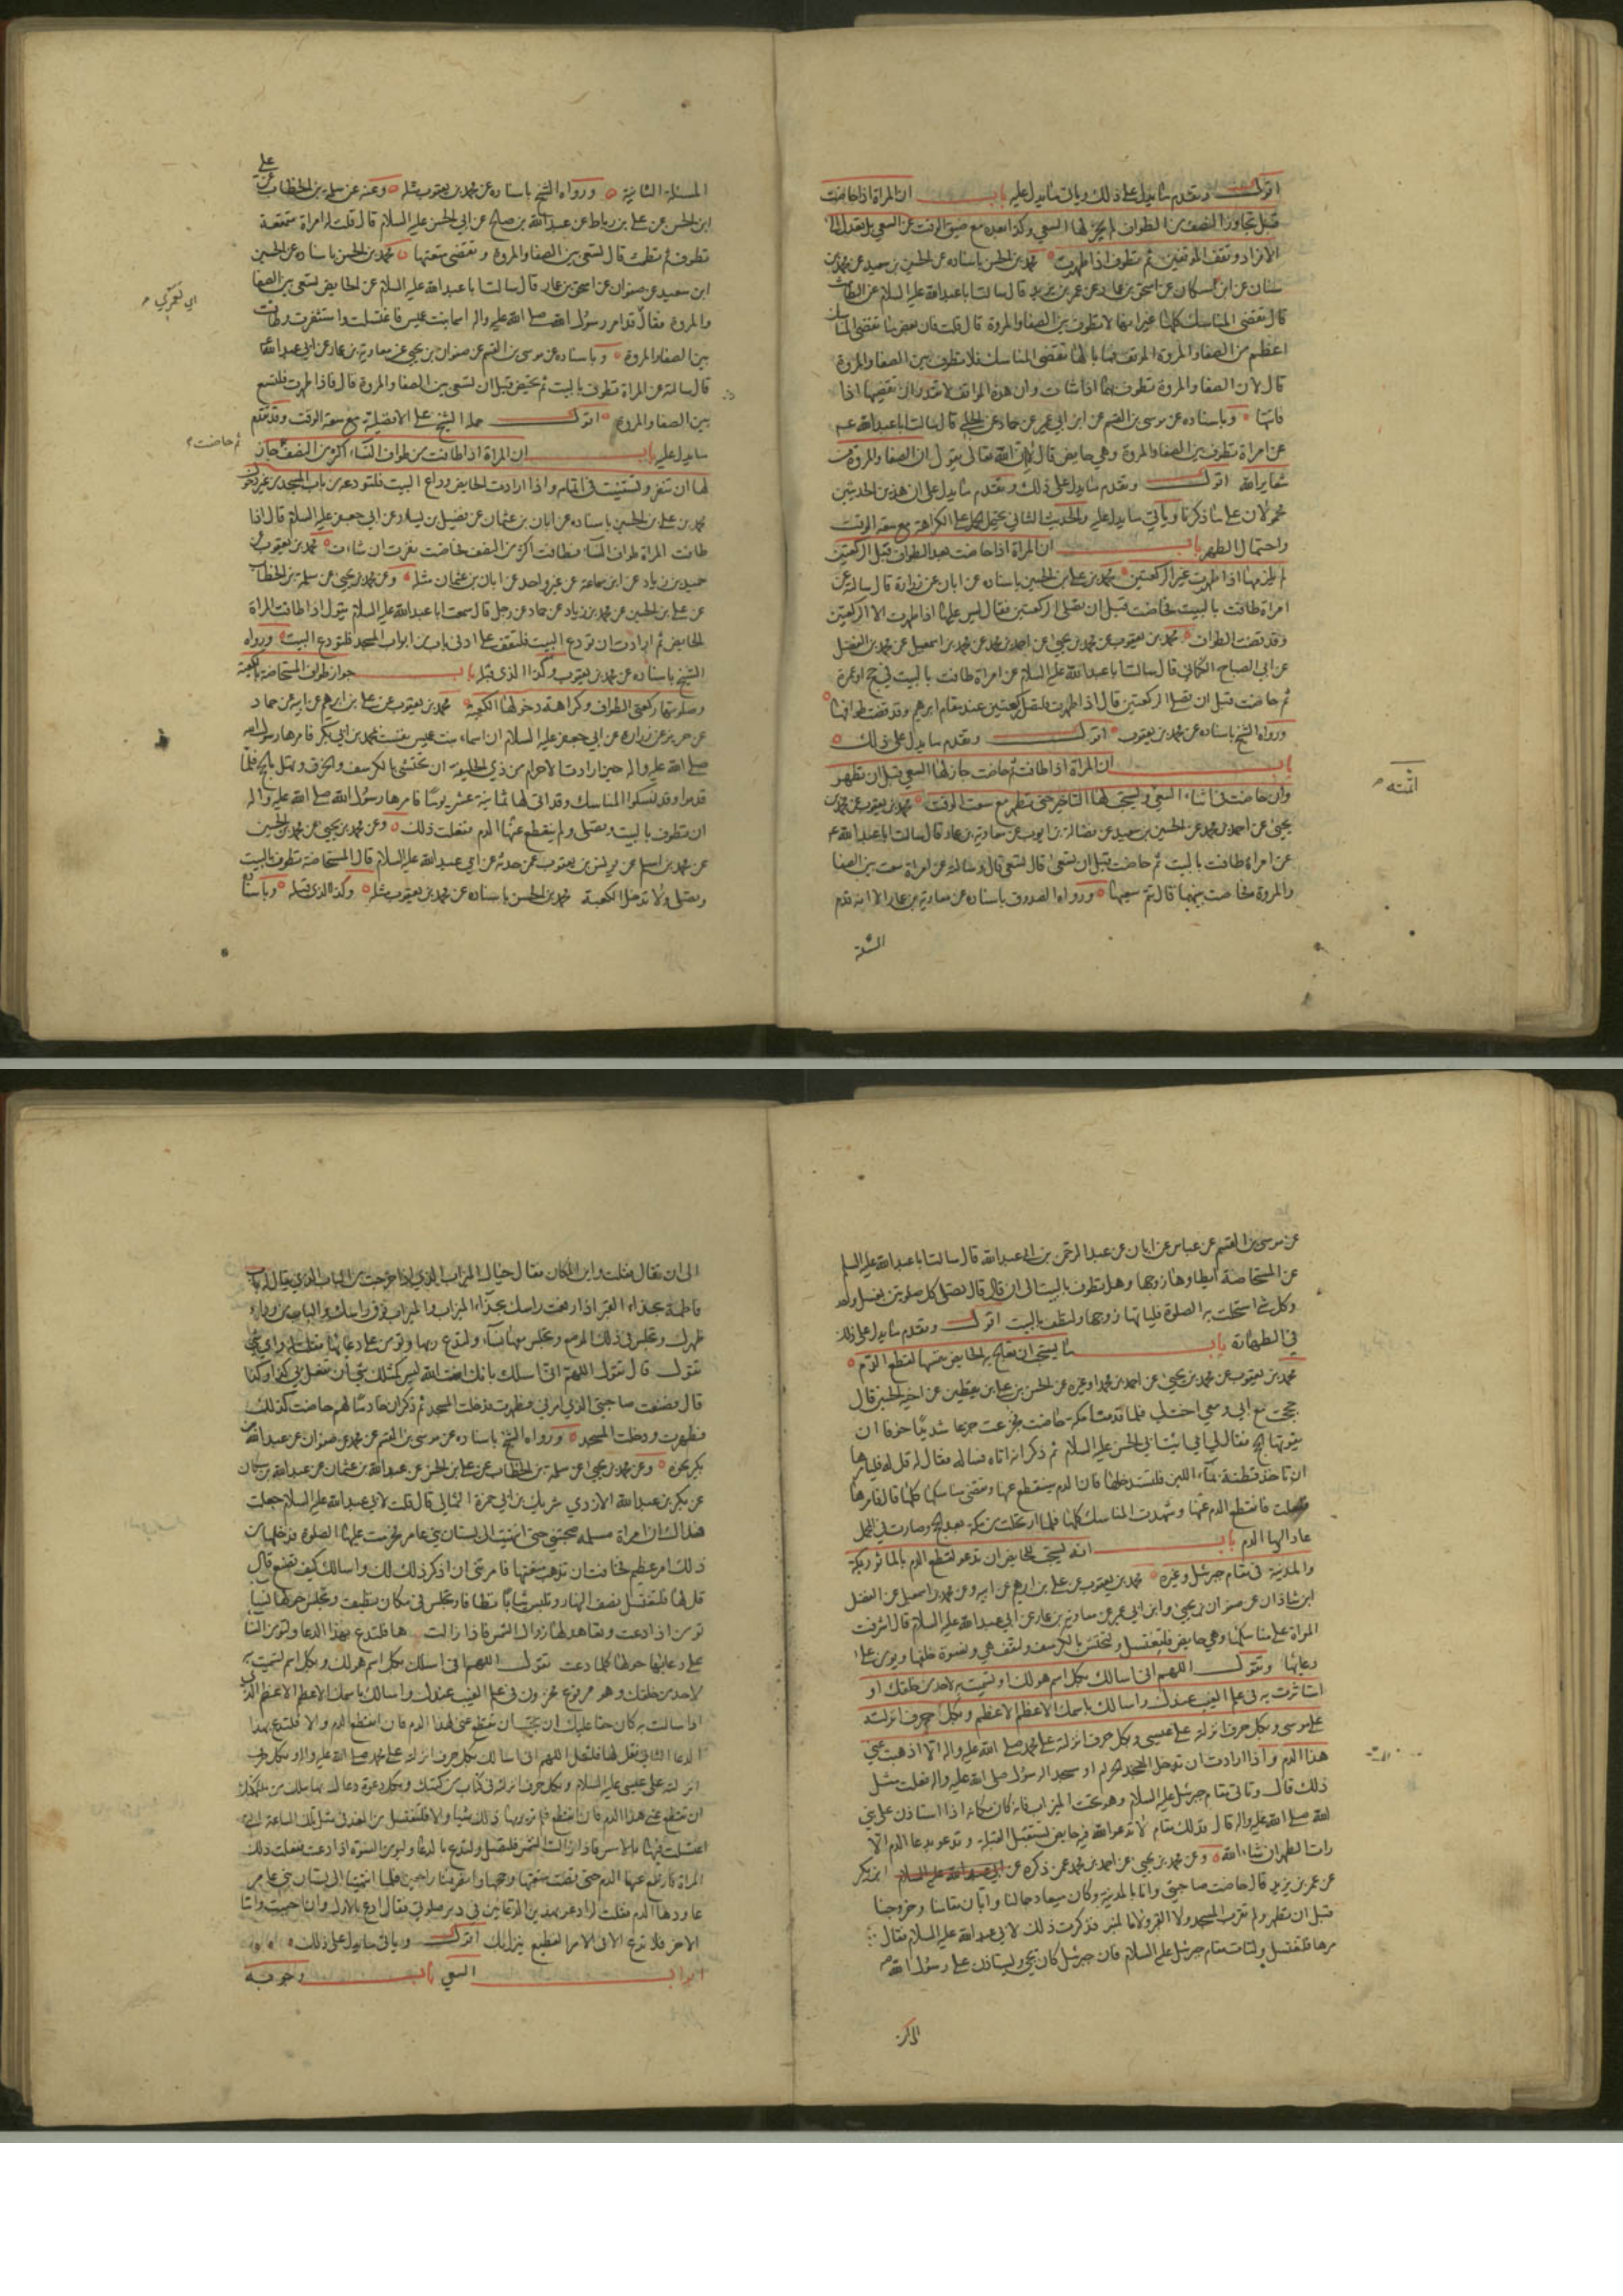 اقول وتقدم ما يدل على ذلك ويأتي ما يدل عليه باب ان المراة اذا حاضت
قبل تجاوز النصف من الطواف لم يجز لها السعي وكذا بعده مع ضيق الوقت عن السعي بل تعدل الى
الافراد وتقف الموقفين ثم تطوف اذا طهرت محمد بن الحسن باسناده عن الحسين بن سعيد عن محمد بن
سنان عن ابن مسكان عن اسحق بن عمار عن عمر بن يزيد قال سالت ابا عبد الله عليه السلام عن الطامث
قال تقضي المناسك كلها غير انها لا تطوف بين الصفا والمروة قال قلت فان بعض ما تقضي المناسك
اعظم من الصفا والمروة الموقف فما بالها تقضي المناسك فلا تطوف بين الصفا والمروة
قال لان الصفا والمروة تطوف بهما اذا شاءت وان هذه المواقف لا تقدر ان تقضيها اذا
فاتتها وباسناده عن موسى بن القسم عن ابن ابي عمير عن حماد عن الحلبي قال سالت ابا عبد الله عم
عن امراة تطوف بين الصفا والمروة وهي حايض قال لا ان الله تعالى يقول ان الصفا والمروة من
شعاير الله اقول وتقدم ما يدل على ذلك وتقدم ما يدل على ان هذين الحديثين
محمولان على ما ذكرنا ويأتي ما يدل عليه والحديث الثاني يحتمل الحمل على الكراهة مع سعة الوقت
واحتمال الطهر باب ان المراة اذا حاضت بعد الطواف قبل الركعتين
لم يلزمها اذا طهرت غير الركعتين محمد بن علي بن الحسين باسناده عن ابان عن زرارة قال سالته عن
امراة طافت بالبيت فحاضت قبل ان تصلي الركعتين فقال ليس عليها اذا طهرت الا الركعتين
وقد قضت الطواف محمد بن يعقوب عن محمد بن يحيى عن احمد بن محمد عن محمد بن اسمعيل عن محمد بن الفضيل
عن ابي الصباح الكناني قال سالت ابا عبد الله عليه السلام عن امراة طافت بالبيت في حج او عمرة
ثم حاضت قبل ان تصلي الركعتين قال اذا طهرت فلتصل ركعتين عند مقام ابرهيم وقد قضت طوافها
ورواه الشيخ باسناده عن محمد بن يعقوب اقول وتقدم ما يدل على ذلك
باب ان المراة اذا طافت ثم حاضت جاز لها السعي قبل ان تطهر
وان حاضت في اثناء السعي ويستحب لها التاخير حتى تطهر مع سعة الوقت محمد بن يعقوب عن محمد بن
يحيى عن احمد بن محمد عن الحسين بن سعيد عن فضالة بن ايوب عن معاوية بن عمار قال سالت ابا عبد الله عم
عن امراة طافت بالبيت ثم حاضت قبل ان تسعى قال تسعى قال وسالته عن امراة سعت بين الصفا
والمروة فحاضت بينهما قال تتم سعيها ورواه الصدوق باسناده عن معاوية بن عمار الا انه قدم
المسئلة
المسئلة الثانية ورواه الشيخ باسناده عن محمد بن يعقوب مثله وعنه عن سلمة بن الخطاب عن علي
ابن الحسن عن علي بن رباط عن عبيد الله بن صالح عن ابي الحسن عليه السلام قال قلت له امراة متمتعة
تطوف ثم تطمث قال تسعى بين الصفا والمروة وتقضي متعتها محمد بن الحسن باسناده عن الحسين
ابن سعيد عن صفوان عن اسحق بن عمار قال سالت ابا عبد الله عليه السلام عن الحايض تسعى بين الصفا
والمروة فقال قد امر رسول الله صلى الله عليه واله اسما بنت عميس فاغتسلت واستثفرت وطافت
بين الصفا والمروة وباسناده عن موسى بن القسم عن صفوان بن يحيى عن معاوية بن عمار عن ابي عبد الله
قال سالته عن المراة تطوف بالبيت ثم تحيض قبل ان تسعى بين الصفا والمروة قال فاذا طهرت فلتسع
بين الصفا والمروة اقول حمله الشيخ على الافضلية مع سعة الوقت وقد تقدم
ما يدل عليه باب ان المراة اذا طافت من طواف النساء اكثر من النصف جاز
ثم حاضت
لها ان تنفر وتستنيب في اتمامه واذا ارادت الحايض وداع البيت فلتودعه من باب المسجد من غير دخول
محمد بن علي بن الحسين باسناده عن ابان بن عثمان عن فضيل بن يسار عن ابي جعفر عليه السلام قال اذا
طافت المراة طواف النساء فطافت اكثر من النصف فحاضت نفرت ان شاءت محمد بن يعقوب عن
حميد بن زياد عن ابن سماعة عن غير واحد عن ابان بن عثمان مثله وعن محمد بن يحيى عن سلمة بن الخطاب
عن علي بن الحسين عن محمد بن زياد عن حماد عن رجل قال سمعت ابا عبد الله عليه السلام يقول اذا طافت المراة
الحايض ثم ارادت ان تودع البيت فلتقف على ادنى باب من ابواب المسجد فلتودع البيت ورواه
الشيخ باسناده عن محمد بن يعقوب وكذا الذي قبله باب جواز طواف المستحاضة بالكعبة
وصلوتها ركعتي الطواف وكراهة دخولها الكعبة محمد بن يعقوب عن علي بن ابرهيم عن ابيه عن حماد
عن حريز عن زرارة عن ابي جعفر عليه السلام ان اسماء بنت عميس نفست بمحمد بن ابي بكر فامرها رسول الله
صلى الله عليه واله حين ارادت الاحرام من ذي الحليفة ان تحتشي بالكرسف والخرق وتهل بالحج فلما
قدموا وقد نسكوا المناسك وقد اتى لها ثمانية عشر يوما فامرها رسول الله صلى الله عليه واله
ان تطوف بالبيت وتصلي ولم ينقطع عنها الدم ففعلت ذلك وعن محمد بن يحيى عن محمد بن الحسين
عن محمد بن اسلم عن يونس بن يعقوب عمن حدثه عن ابي عبد الله عليه السلام قال المستحاضة تطوف بالبيت
وتصلي ولا تدخل الكعبة محمد بن الحسن باسناده عن محمد بن يعقوب مثله وكذا الذي قبله وباسناده
عن موسى بن القسم عن عباس عن ابان عن عبد الرحمن بن ابي عبد الله قال سالت ابا عبد الله عليه السلم
عن المستحاضة ايطاوها زوجها وهل تطوف بالبيت الى ان قال قال تصلي كل صلوتين بغسل واحد
وكل شي استحلت به الصلوة فلياتها زوجها ولتطف بالبيت اقول وتقدم ما يدل على ذلك
في الطهارة باب ما يستحب ان تعالج به الحايض نفسها لقطع الدم
محمد بن يعقوب عن محمد بن يحيى عن احمد بن محمد او غيره عن الحسن بن علي بن يقطين عن اخيه الحسين قال
حججت مع ابي ومعي اخت لي فلما قدمنا مكة حاضت فجزعت جزعا شديدا خوفا ان
يفوتها الحج فقال لي ابي ائت ابا الحسن عليه السلام ثم ذكر انه اتاه فساله فقال له قل له فليامرها
ان تاخذ قطنة بماء اللبن فلتستدخلها فان الدم سينقطع عنها وتقضي مناسكها كلها قال فامرها
ففعلت فانقطع الدم عنها وشهدت المناسك كلها فلما ارتحلت من مكة بعد الحج وصارت في المحمل
عاد اليها الدم باب انه يستحب للحايض ان تدعو لقطع الدم بالماثور بمكة
والمدينة في مقام جبرئيل وغيره محمد بن يعقوب عن علي بن ابرهيم عن ابيه وعن محمد بن اسمعيل عن الفضل
ابن شاذان عن صفوان بن يحيى وابن ابي عمير عن معاوية بن عمار عن ابي عبد الله عليه السلام قال اذا اشرفت
المراة على مناسكها وهي حايض فلتغتسل ولتحتش بالكرسف ولتقف هي ونسوة خلفها ويؤمن على
دعائها وتقول اللهم اني اسالك بكل اسم هو لك او تسميت به لاحد من خلقك او
استاثرت به في علم الغيب عندك واسالك باسمك الاعظم الاعظم وبكل حرف انزلته
على موسى وبكل حرف انزلته على عيسى وبكل حرف انزلته على محمد صلى الله عليه واله الا اذهبت عني
هذا الدم واذا ارادت ان تدخل المسجد الحرام او مسجد الرسول صلى الله عليه واله فعلت مثل
ذلك قال وتاتي مقام جبرئيل عليه السلام وهو تحت الميزاب فانه كان مكانه اذا استاذن على نبي
الله صلى الله عليه واله قال فذلك مقام لا تدعو الله فيه حايض تستقبل القبلة وتدعو بدعاء الدم الا
رات الطهر ان شاء الله وعن محمد بن يحيى عن احمد بن محمد عمن ذكره عن ابن بكير
عن عمر بن يزيد قال حاضت صاحبتي وانا بالمدينة وكان ميعاد جمالنا وابان مقامنا وخروجنا
قبل ان تطهر ولم تقرب المسجد ولا القبر ولا المنبر فذكرت ذلك لابي عبد الله عليه السلام فقال
مرها فلتغتسل ولتات مقام جبرئيل عليه السلام فان جبرئيل كان يجي ويستاذن على رسول الله
الى ان قال فقلت واين المكان فقال حيال الميزاب الذي اذا خرجت من الباب الذي يقال له باب
فاطمة بحذاء القبر اذا رفعت راسك بحذاء الميزاب والميزاب فوق راسك والباب من وراء
ظهرك وتجلس في ذلك الموضع وتجلس معها نساء ولتدع ربها ويؤمن على دعائها فقلت واي شي
تقول قال تقول اللهم اني اسالك بانك انت الله ليس كمثلك شي ان تفعل بي كذا وكذا
قال فصنعت صاحبتي الذي امرني فطهرت ودخلت المسجد ثم ذكر ان خادما لهم حاضت كذلك
فطهرت ودخلت المسجد ورواه الشيخ باسناده عن موسى بن القسم عن محمد عن صفوان عن عبد الله بن
بكير نحوه وعن محمد بن يحيى عن سلمة بن الخطاب عن علي بن الحسن عن عبد الله بن عثمان عن عبد الله بن مسكان
عن بكر بن عبد الله الازدي شريك بن ابي حمزة الثمالي قال قلت لابي عبد الله عليه السلام جعلت
فداك ان امراة مسلمة صحبتني حتى انتهيت الى بستان بني عامر فحرمت عليها الصلوة فدخلها من
ذلك امر عظيم فخافت ان تذهب متعتها فامرتني ان اذكر ذلك لك واسالك كيف تصنع قال
قل لها فلتغتسل نصف النهار وتلبس ثيابا نظافا وتجلس في مكان نظيف وتجلس حولها نساء
يؤمن اذا دعت وتعاهد لها زوال الشمس فاذا زالت فمرها فلتدع بهذا الدعاء وليؤمن النساء
على دعائها حولها كلما دعت تقول اللهم اني اسالك بكل اسم هو لك وبكل اسم تسميت به
لاحد من خلقك وهو مرفوع مخزون في علم الغيب عندك واسالك باسمك الاعظم الاعظم الذي
اذا سالت به كان حقا عليك ان تجيب ان تقطع عني هذا الدم فان انقطع الدم والا فلتدع بهذا
الدعا الثاني فقل لها فلتقل اللهم اني اسالك بكل حرف انزلته على محمد صلى الله عليه واله وبكل حرف
انزلته على عيسى عليه السلام وبكل حرف انزلته في كتاب من كتبك وبكل دعوة دعاك بها ملك من ملائكتك
ان تقطع عني هذا الدم فان انقطع فلم تر يومها ذلك شيا والا فلتغتسل من الغد في مثل تلك الساعة التي
اغتسلت فيها بالامس فاذا زالت الشمس فلتصل ولتدع بالدعاء وليؤمن النسوة اذا دعت ففعلت ذلك
المراة فارتفع عنها الدم حتى قضت متعتها وحجها وانصرفنا راجعين فلما انتهينا الى بستان بني عامر
عاودها الدم فقلت له ادعو بهذين الدعائين في دبر صلوتي فقال ادع بالاول ان احببت واما
الاخر فلا تدع الا في الامر الفظيع ينزل بك اقول وياتي ما يدل على ذلك
ابواب السعي باب وجوبه